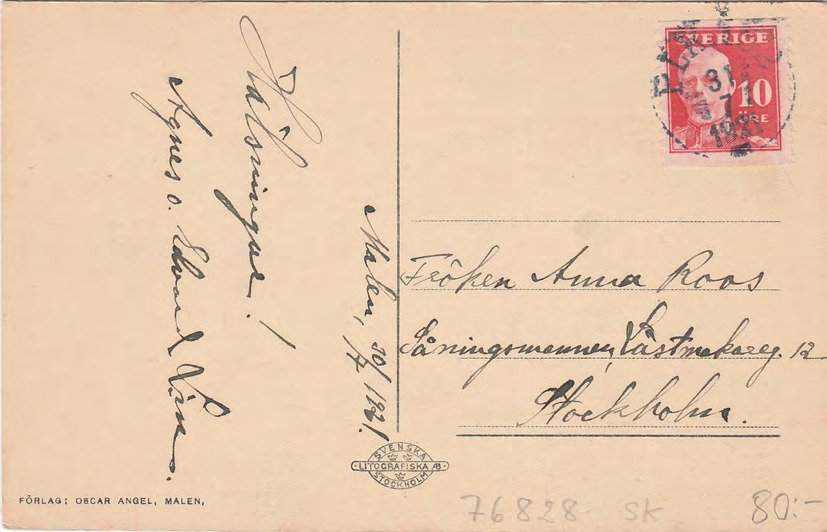 Hälsningar!
Agnes o. Edvard
Malen, 30/7 1921.
SVERIGE
10
ÖRE
31
7
1921
Fröken Anna Roos
Såningsmannen, Låstmakareg. 12
Stockholm.
SVENSKA
LITOGRAFISKA AB
STOCKHOLM
FÖRLAG: OSCAR ANGEL, MALEN,
76828 SK 80:-